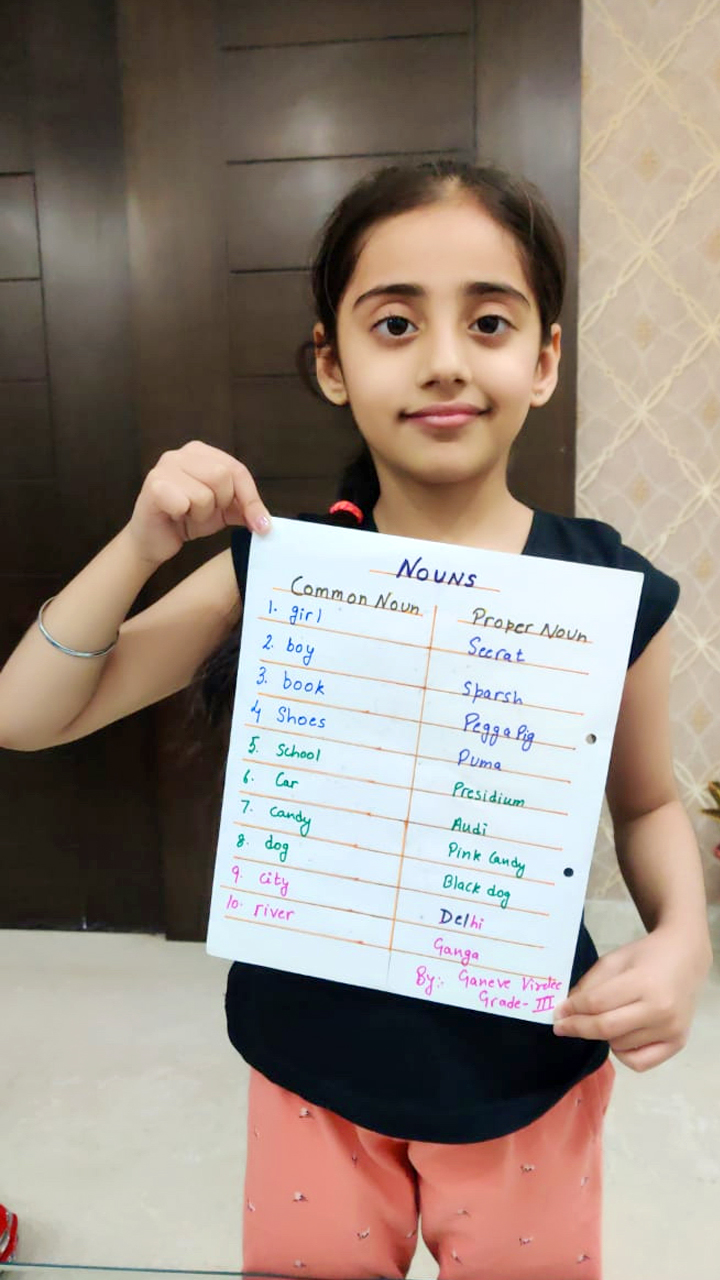 NOUNS
Common Noun Proper Noun
1. girl Seerat
2. boy Sparsh
3. book Pegga Pig
4 Shoes Puma
5. School Presidium
6. Car Audi
7. Candy Pink Candy
8. dog Black dog
9. city Delhi
10. river Ganga
By:- Ganeve
Grade- III